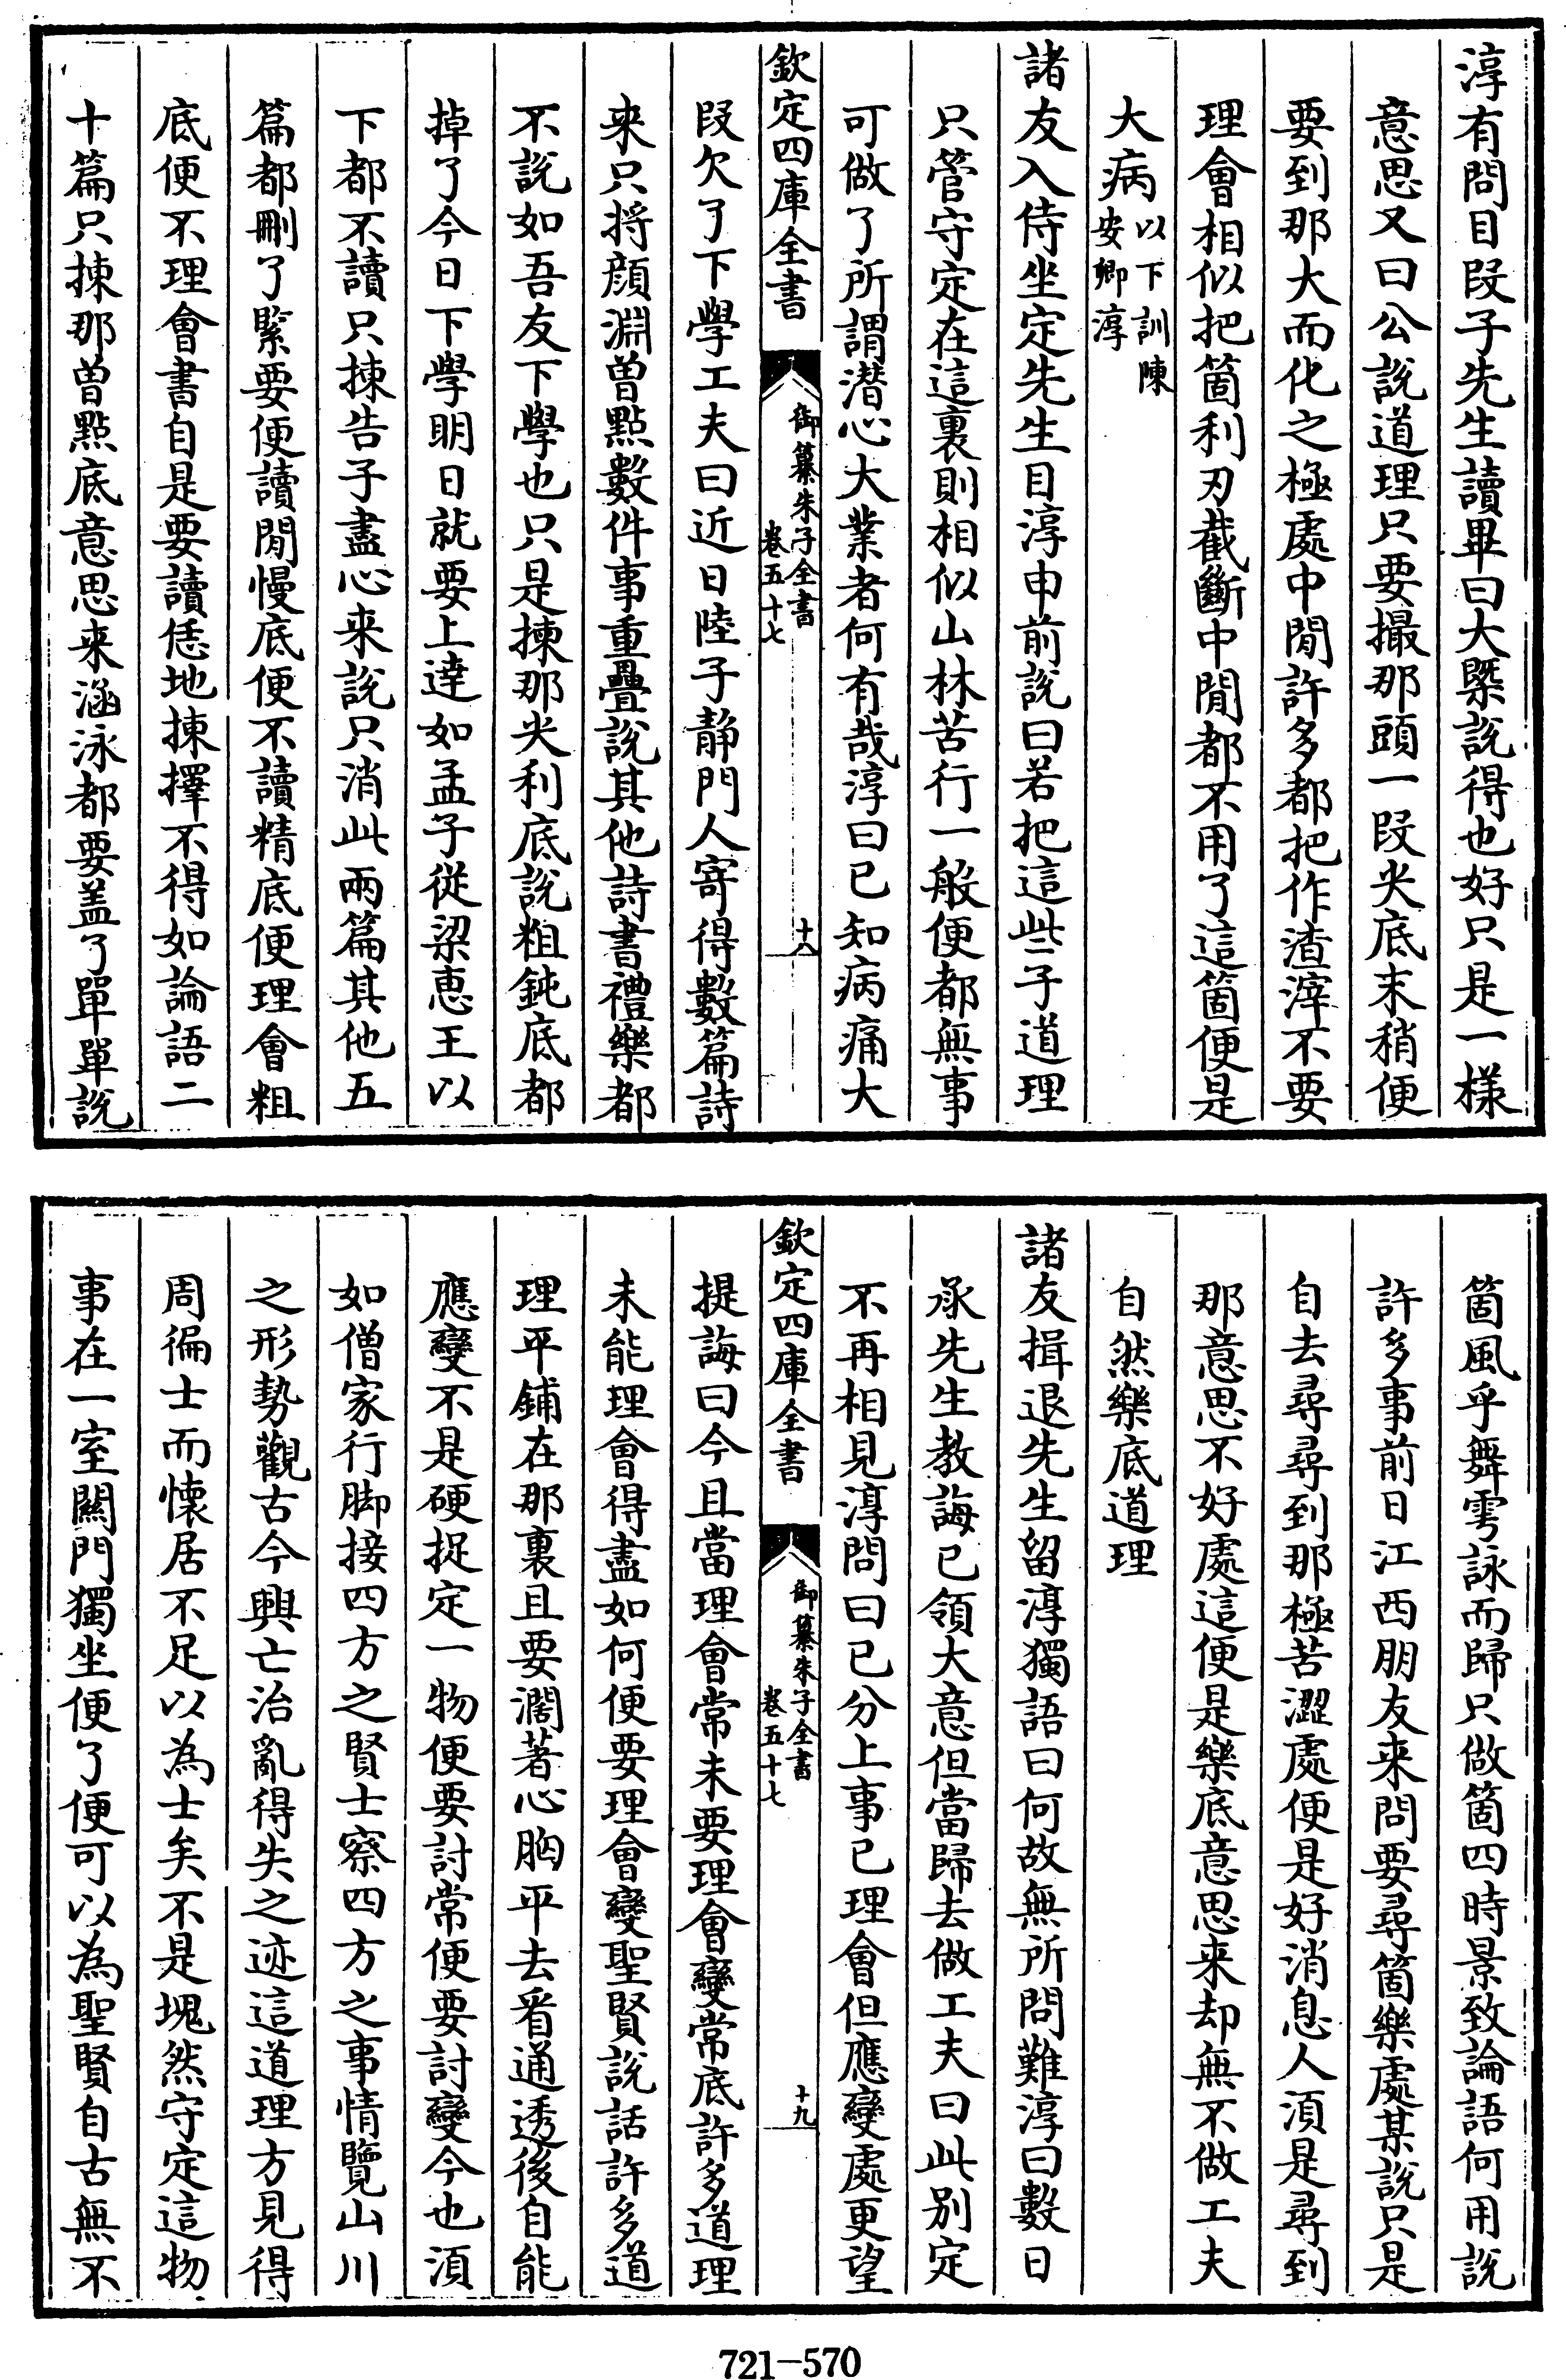 淳有問目叚子先生讀畢曰大槩説得也好只是一様
意思又曰公説道理只要撮那頭一叚尖底末稍便
要到那大而化之極處中間許多都把作渣滓不要
理會相似把箇利刃截斷中間都不用了這箇便是
大病以下訓陳
安卿淳
諸友入侍坐定先生目淳申前説曰若把這些子道理
只管守定在這裏則相似山林苦行一般便都無事
可做了所謂潜心大業者何有哉淳曰已知病痛大
欽定四庫全書
御纂朱子全書
卷五十七
十八
叚欠了下學工夫曰近日陸子静門人寄得數篇詩
来只将顔淵曽點數件事重疊説其他詩書禮樂都
不説如吾友下學也只是揀那尖利底説粗鈍底都
掉了今日下學明日就要上達如孟子從梁恵王以
下都不讀只揀告子盡心来説只消此兩篇其他五
篇都刪了緊要便讀閒慢底便不讀精底便理會粗
底便不理會書自是要讀恁地揀擇不得如論語二
十篇只揀那曽點底意思来涵泳都要盖了單單説
箇風乎舞雩詠而歸只做箇四時景致論語何用説
許多事前日江西朋友来問要尋箇樂處某説只是
自去尋尋到那極苦澀處便是好消息人湏是尋到
那意思不好處這便是樂底意思来却無不做工夫
自然樂底道理
諸友揖退先生留淳獨語曰何故無所問難淳曰數日
承先生教誨已領大意但當歸去做工夫曰此别定
不再相見淳問曰已分上事已理會但應變處更望
欽定四庫全書
御纂朱子全書
卷五十七
十九
提誨曰今且當理會常未要理會變常底許多道理
未能理會得盡如何便要理會變聖賢説話許多道
理平鋪在那裏且要濶著心胸平去看通透後自能
應變不是硬捉定一物便要討常便要討變今也湏
如僧家行脚接四方之賢士察四方之事情覽山川
之形勢觀古今興亡治亂得失之迹這道理方見得
周徧士而懐居不足以為士矣不是塊然守定這物
事在一室關門獨坐便了便可以為聖賢自古無不
721-570